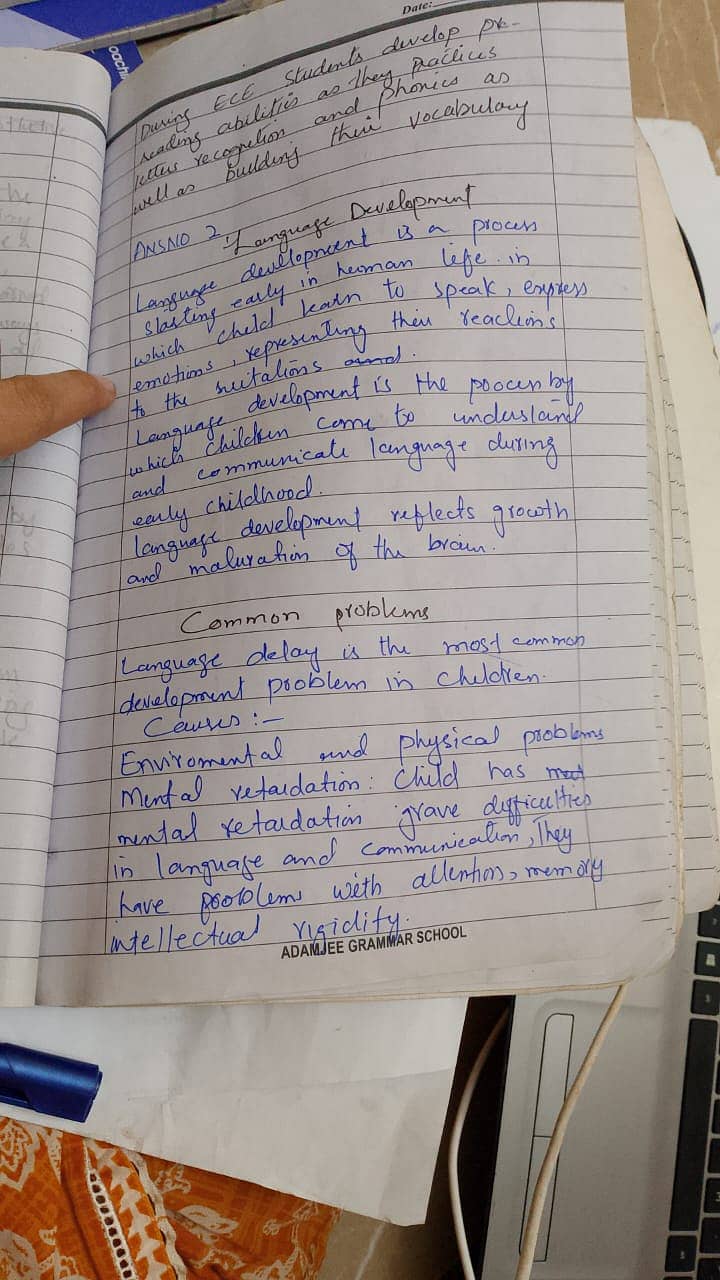 Date:
During ECE Students develop pre-
reading abilities as they practices
letters recognetion and phonics as
well as building their vocabulary
ANSNO 2 Language Development
Language development is a process
starting early in human life. in
which child learn to speak, express
emotions, representing their reactions
to the suitations and.
Language development is the process by
which children come to understand
and communicate language during
early childhood.
language development reflects growth
and maturation of the brain.
Common problems
Language delay is the most common
development problem in children.
Causes :-
Enviromental and physical problems
Mental retardation: Child has
mental retardation grave difficulties
in language and communication, They
have problems with attention, memory
intellectual rigidity.
ADAMJEE GRAMMAR SCHOOL